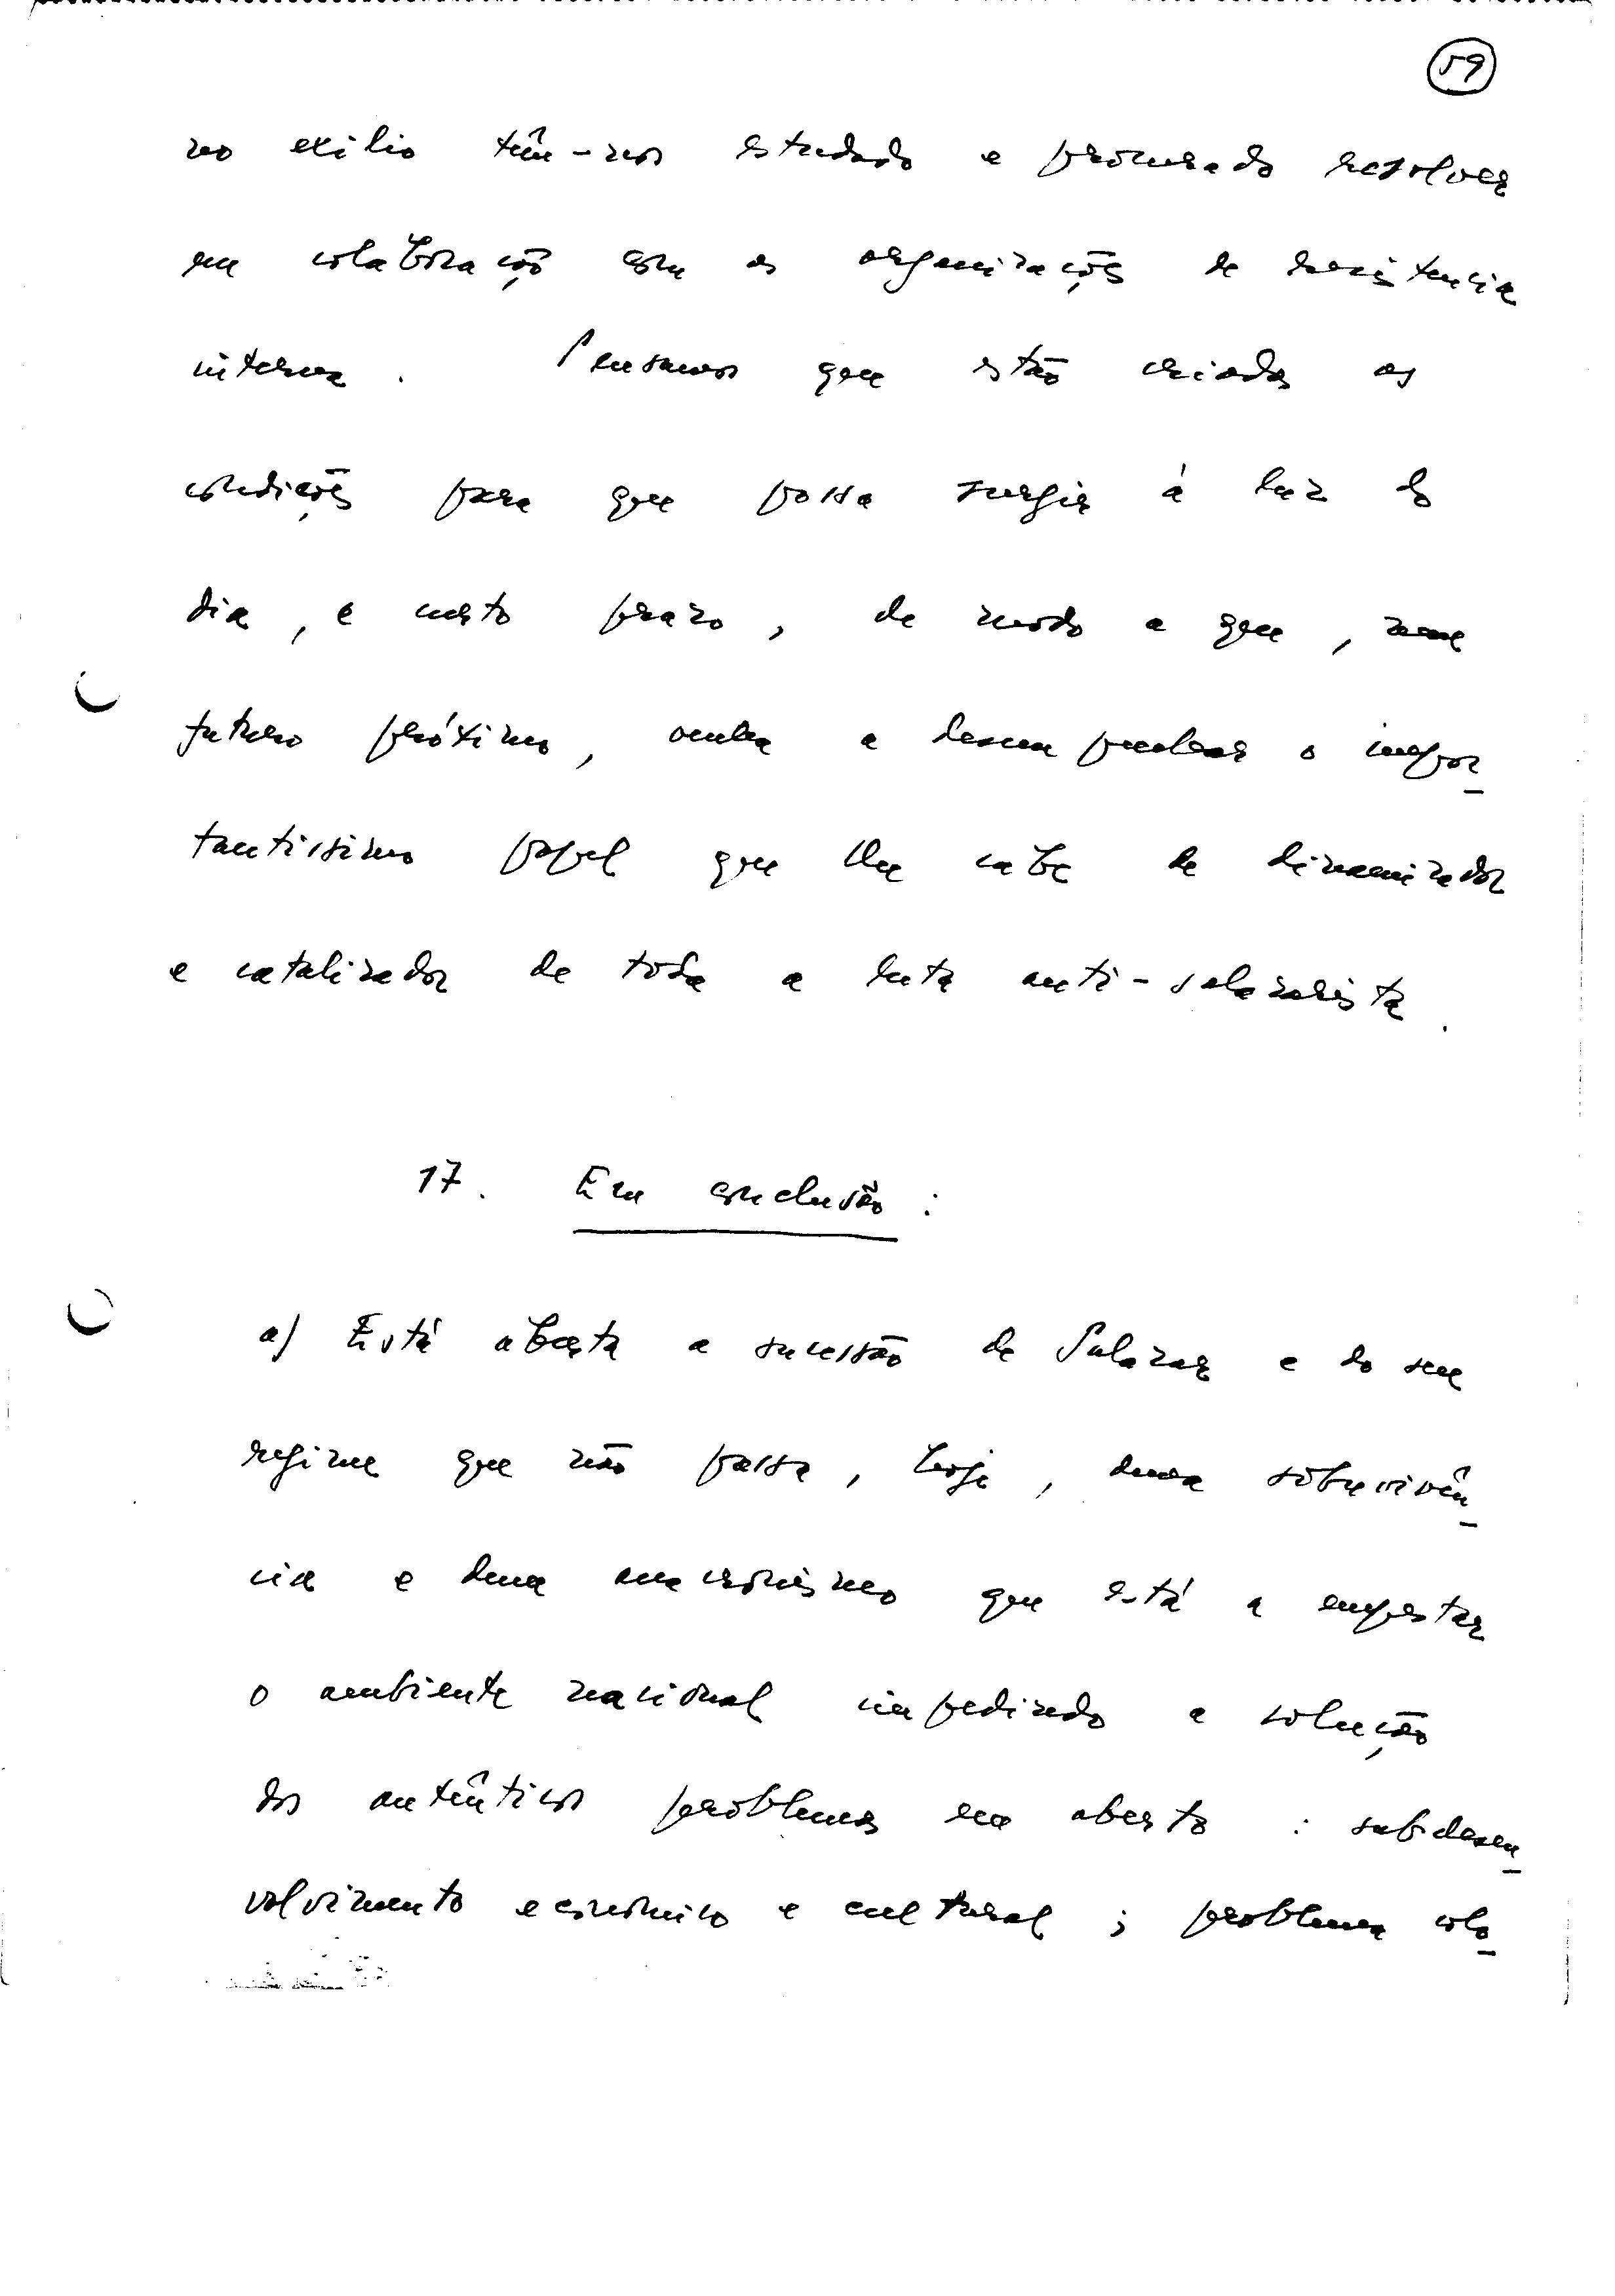 59
no exílio têm-nos estudado e procurado resolver
em colaboração com as organizações de resistencia
interna. Pensamos que estão criadas as
condições para que possa surgir à luz do
dia, a curto prazo, de modo a que, num
futuro próximo, venha a desempenhar o impor
tantissimo papel que lhe cabe de dinamizador
e catalizador de toda a luta anti-salazarista.
17. Em conclusão:
a) Está aberta a sucessão de Salazar e do seu
regime que não passa, hoje, duma sobrevivên
cia e dum anacronismo que está a empestar
o ambiente nacional impedindo a solução
dos autênticos problemas em aberto: subdesen
volvimento económico e cultural; problema colo